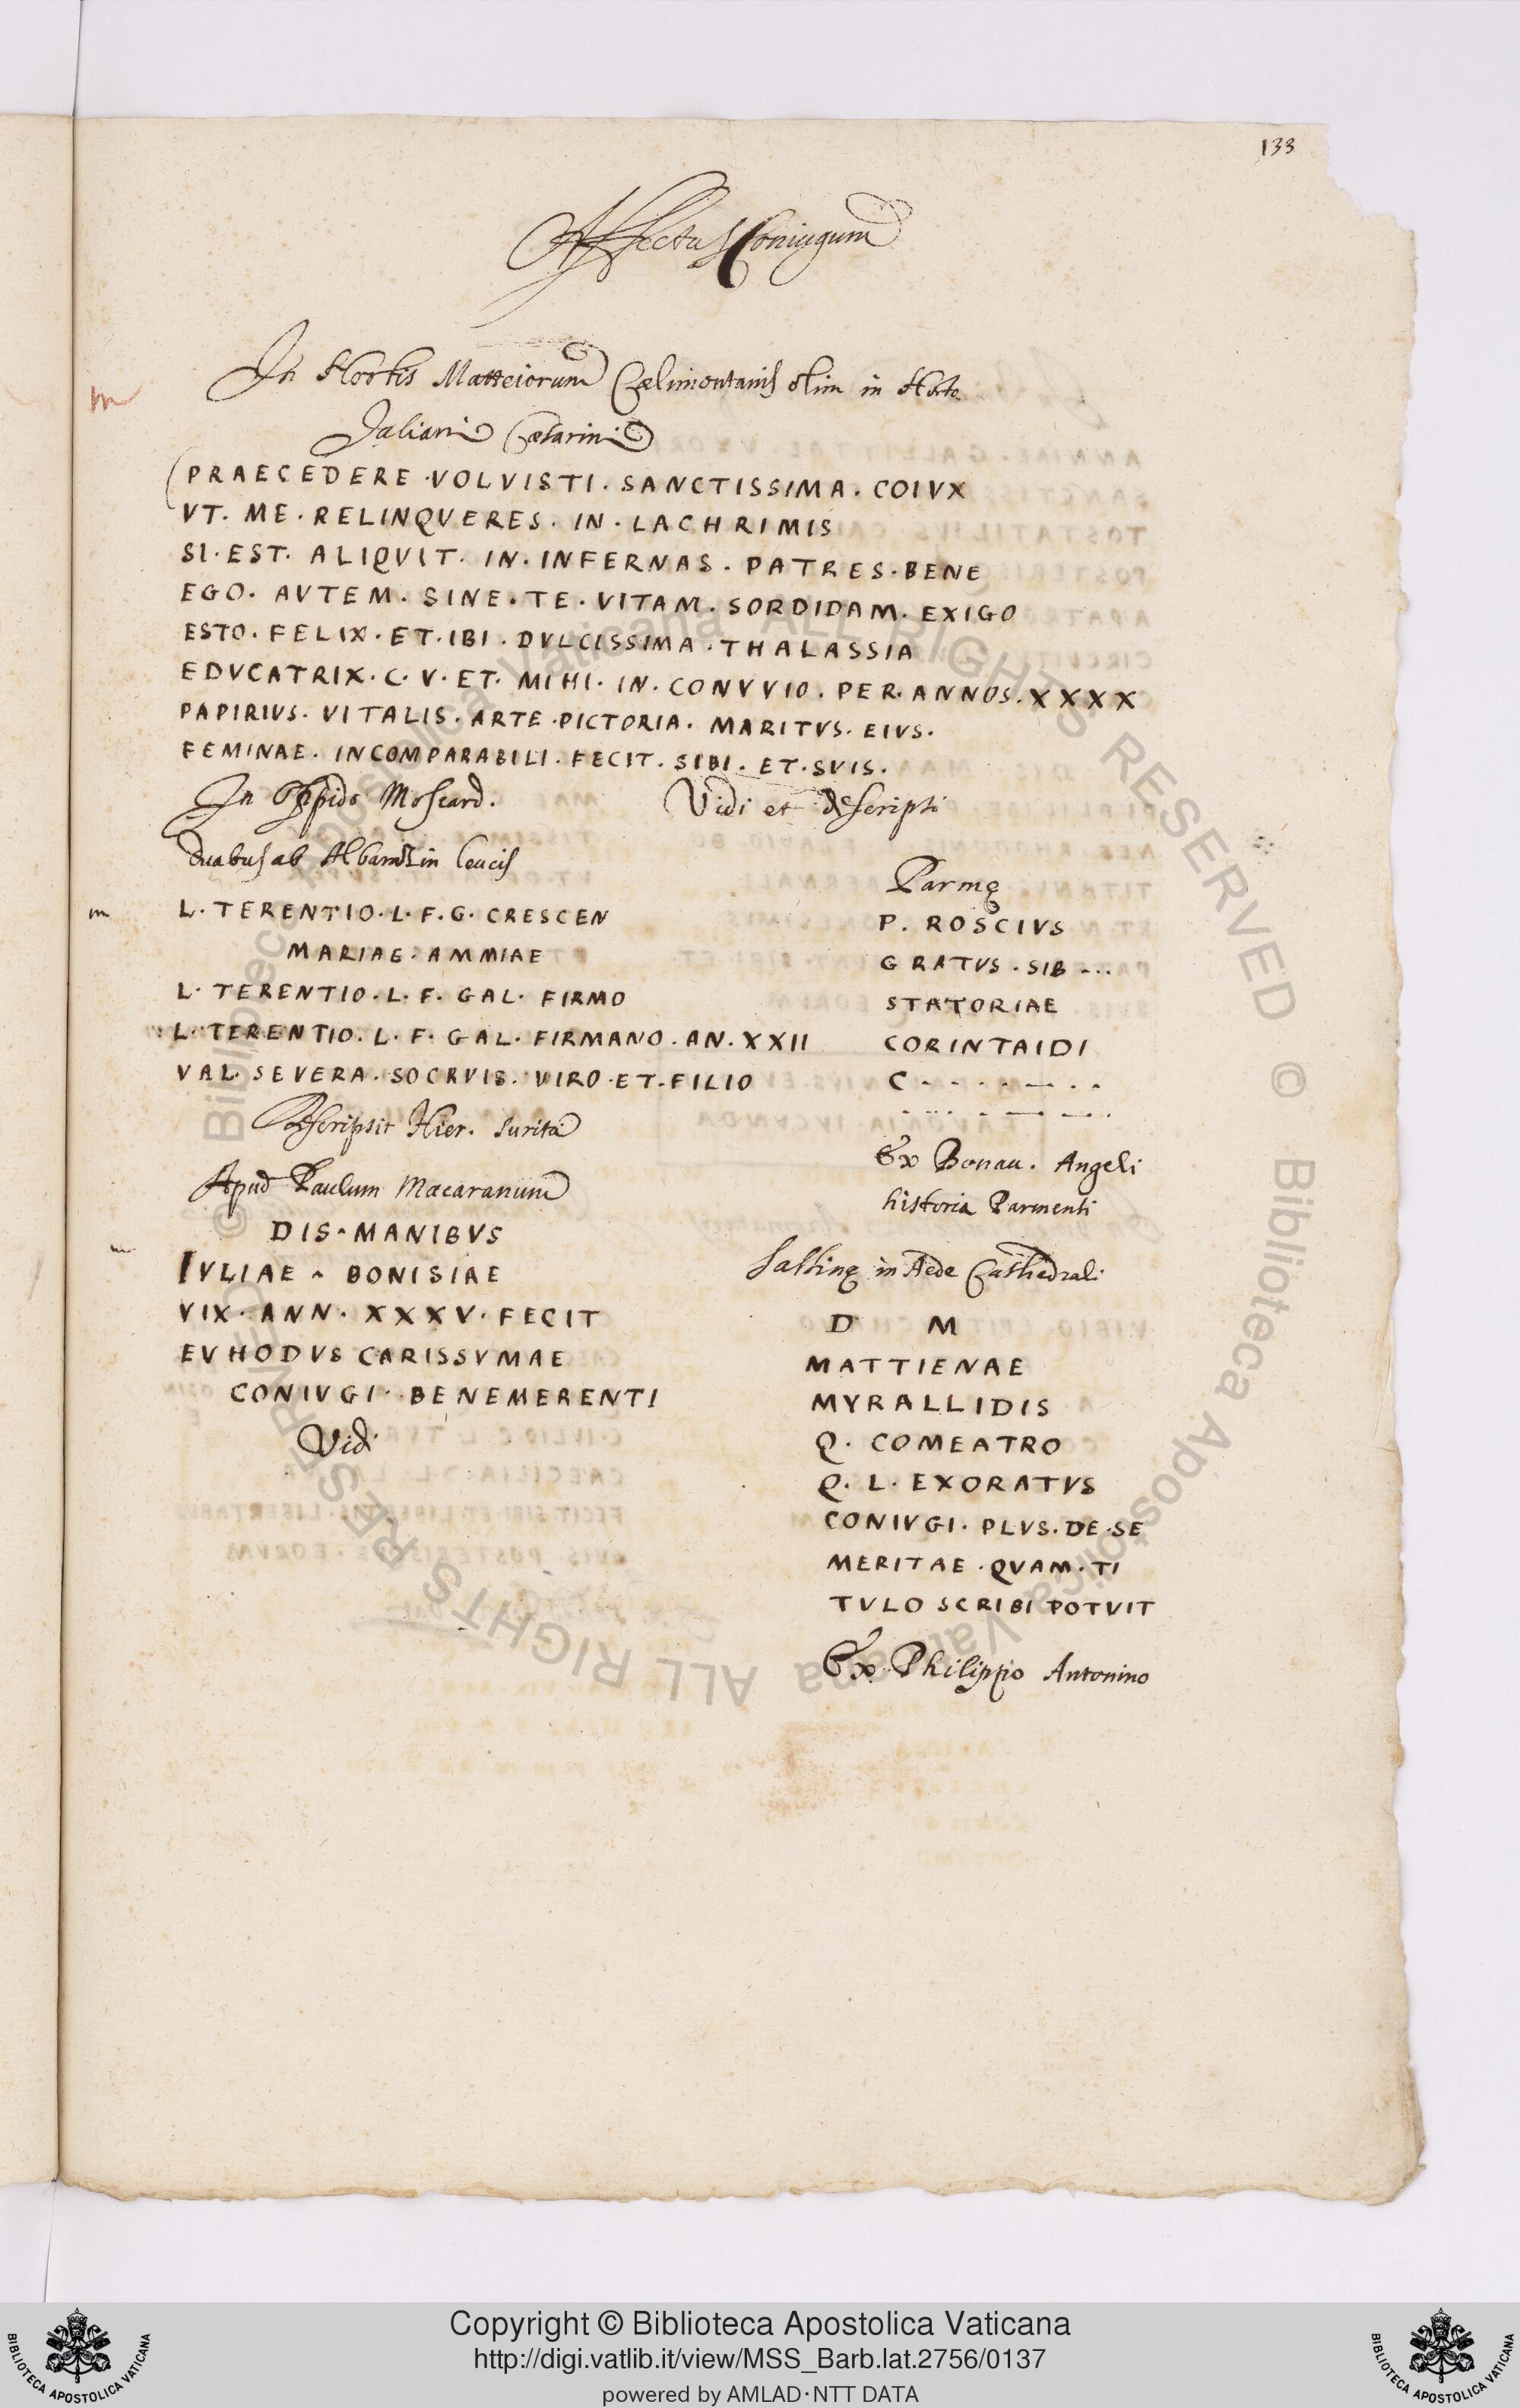 133
Affectus Coniugum
In Hortis Matteiorum Cælimontanis olim in Horto
Iuliani Cæsarini
m
PRAECEDERE · VOLVISTI . SANCTISSIMA . COIVX
VT . ME . RELINQVERES . IN . LACHRIMIS
SI . EST . ALIQVIT . IN . INFERNAS . PATRES . BENE
EGO . AVTEM . SINE . TE . VITAM . SORDIDAM . EXIGO
ESTO . FELIX . ET . IBI . DVLCISSIMA . THALASSIA
EDVCATRIX . C . V . ET . MIHI . IN . CONVVIO . PER . ANNOS . XXXX
PAPIRIVS . VITALIS . ARTE . PICTORIA . MARITVS . EIVS .
FEMINAE . INCOMPARABILI . FECIT . SIBI . ET . SVIS .
Vidi et descripsi
In Oppido Moscard.
duabus ab in leucis
m
L . TERENTIO . L . F . G . CRESCEN
MARIAE . AMMIAE
L . TERENTIO . L . F . GAL . FIRMO
L . TERENTIO . L . F . GAL . FIRMANO . AN . XXII
VAL . SEVERA . SOCRVIS . VIRO . ET . FILIO
Descripsit Hier. Surita
Apud Paulum Macaranum
m
DIS · MANIBVS
IVLIAE · BONISIAE
VIX · ANN · XXXV · FECIT
EVHODVS CARISSVMAE
CONIVGI · BENEMERENTI
Vidi
Parmę
P . ROSCIVS
GRATVS . SIB - ...
STATORIAE
CORINTAIDI
C - . - . - — . .
. ... . - — — . .
Ex Bonau. Angeli
historia Parmensi
in Aede Cathedrali
D M
MATTIENAE
MYRALLIDIS
Q . COMEATRO
Q . L . EXORATVS
CONIVGI . PLVS . DE . SE
MERITAE . QVAM . TI
TVLO SCRIBI POTVIT
Ex Philippo Antonino
© Biblioteca Apostolica Vaticana ALL RIGHTS RESERVED © Biblioteca Apostolica Vaticana ALL RIGHTS RESERVED
BIBLIOTECA APOSTOLICA VATICANA
Copyright © Biblioteca Apostolica Vaticana
http://digi.vatlib.it/view/MSS_Barb.lat.2756/0137
powered by AMLAD·NTT DATA
BIBLIOTECA APOSTOLICA VATICANA